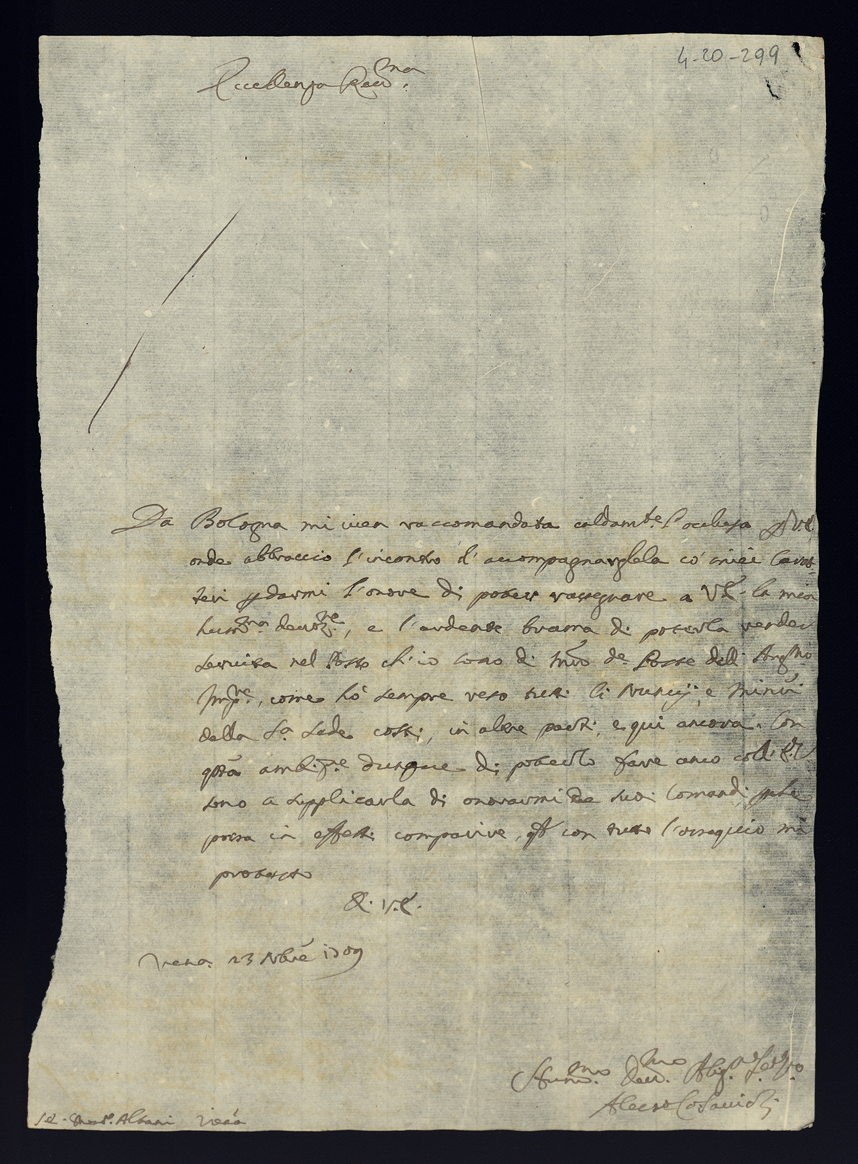 4-20-299
Eccellenza Rev.ma
Da Bologna mi vien raccomandata caldam.te l'acclusa p VE
onde abbraccio l'incontro d'accompagnarglela co' miei Carat-
teri p darmi l'onore di poter rassegnare a VE la mia
hum.ma devoz.ne, e l'ardente brama di poterla render
servita nel Posto ch'io sono di de Poste dell'
Imp.re, come hò sempre verso tutti li Nuncij e Ministri
della S.a Sede costì, in altre parti, e qui ancora. Con
q.sta ambiz.ne dunque di poterlo fare anco
sono a supplicarla di onorarmi de suoi Comandi, p che
possa in effetti comparire, q.l con tutto l'ossequio mi
protesto
D. V.E.
23 Nbre 1709
Hum.mo Dev.mo Obl.mo Ser.re
Alessio
Albani